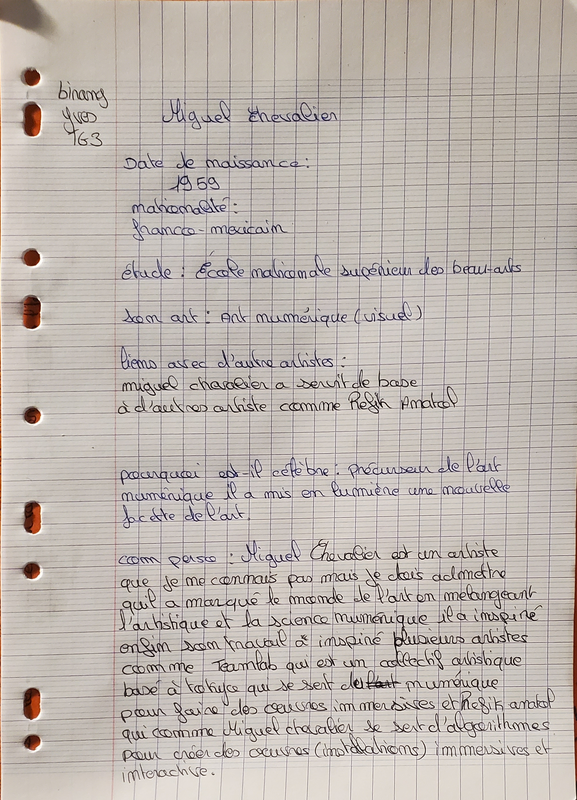 binang
yves
TG3
Miguel Chevalier
Date de naissance :
1959
nationalité :
franco-mexicain
étude : École nationale supérieur des beau-arts
son art : Art numérique (visuel)
liens avec d'autre artistes :
miguel chavalier a servit de base
à d'autres artiste comme Refik Anatol
pourquoi est-il célèbre : précurseur de l'art
numérique il a mis en lumière une nouvelle
facette de l'art.
com perso : Miguel Chevalier est un artiste
que je ne connais pas mais je dois admettre
qu'il a marqué le monde de l'art en mélangeant
l'artistique et la science numérique il a inspiré
enfin son travail a inspiré plusieurs artistes
comme Teamlab qui est un collectif artistique
basé à tokyo qui se sert du numérique
pour faire des œuvres immersives et Refik anatol
qui comme Miguel chevalier se sert d'algorithmes
pour créer des œuvres (installations) immersives et
interactive.